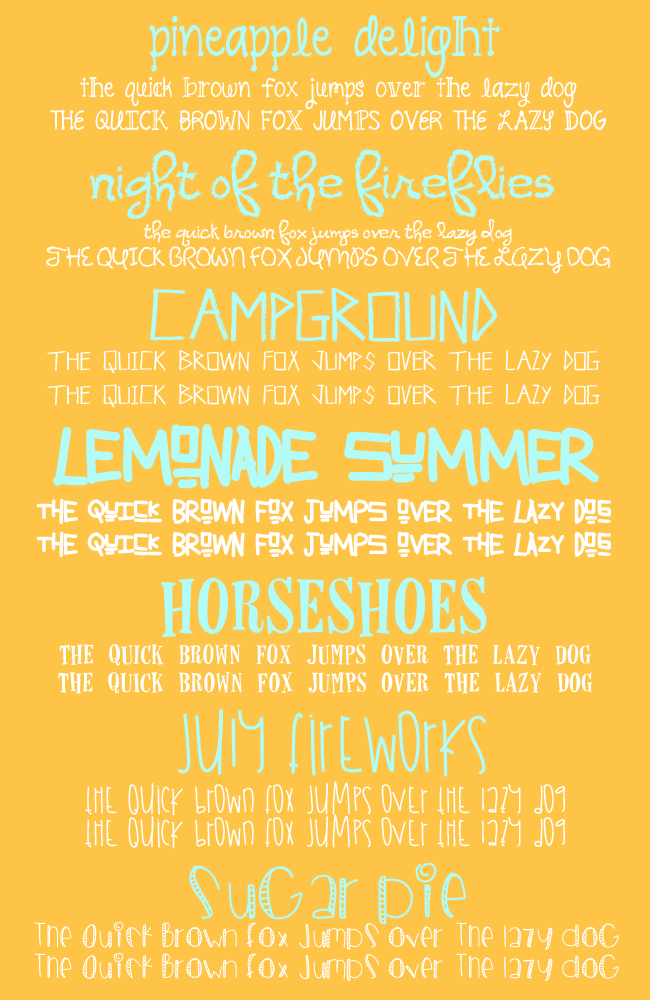 pineapple delight
the quick brown fox jumps over the lazy dog
THE QUICK BROWN FOX JUMPS OVER THE LAZY DOG
night of the fireflies
the quick brown fox jumps over the lazy dog
THE QUICK BROWN FOX JUMPS OVER THE LAZY DOG
CAMPGROUND
THE QUICK BROWN FOX JUMPS OVER THE LAZY DOG
THE QUICK BROWN FOX JUMPS OVER THE LAZY DOG
LEMONADE SUMMER
THE QUICK BROWN FOX JUMPS OVER THE LAZY DOG
THE QUICK BROWN FOX JUMPS OVER THE LAZY DOG
HORSESHOES
THE QUICK BROWN FOX JUMPS OVER THE LAZY DOG
THE QUICK BROWN FOX JUMPS OVER THE LAZY DOG
JUlY firEWOrKS
tHE QUICK brOWn fOX JUMPS OVEr tHE lazY dOg
tHE QUICK brOWn fOX JUMPS OVEr tHE lazY dOg
SuGar pie
The Quick Brown fox Jumps over The lazy doG
The Quick Brown fox Jumps over The lazy doG